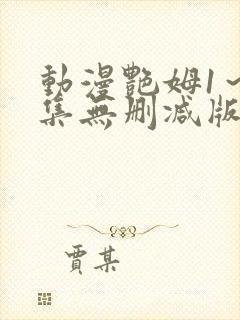 動漫艷姆1～
集無刪減版
賈某